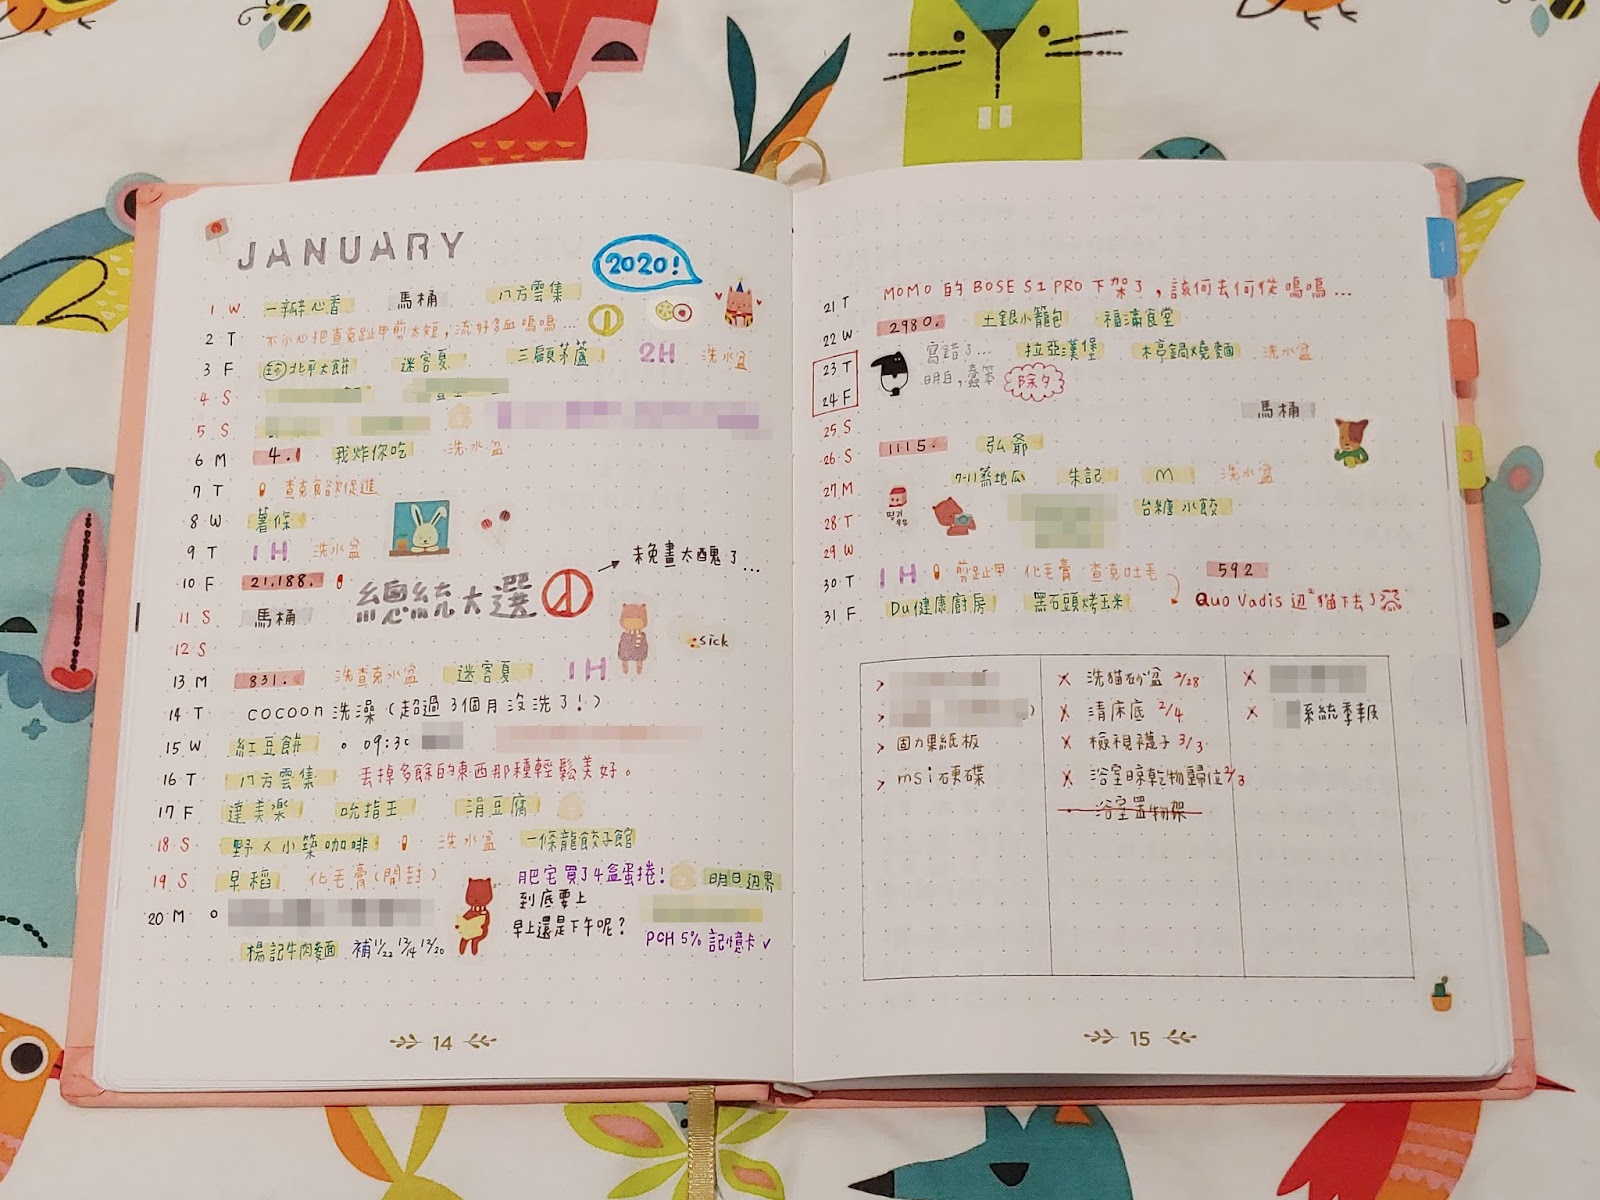 JANUARY
2020!
1 W 一瓣心香 馬桶 八方雲集
2 T 不小心把查克趾甲剪太短,流好多血嗚嗚...
3 F 北平大餅 迷客夏 三顧茅蘆 2H 洗水盆
4 S
5 S
6 M 4.1 我炸你吃 洗水盆
7 T 查克食欲促進
8 W 薯條
9 T 1H 洗水盆
未免畫太醜了...
10 F 21,188. 總統大選
11 S 馬桶
12 S sick
13 M 831. 洗查克水盆 迷客夏 1H
14 T cocoon 洗澡(超過3個月沒洗了!)
15 W 紅豆餅 09:30
16 T 八方雲集 丟掉多餘的東西那種輕鬆美好。
17 F 達美樂 吮指王 涓豆腐
18 S 野X小築咖啡 洗水盆 一條龍餃子館
19 S 早稻 化毛膏(開封) 肥宅買了4盒蛋捲! 明日邊界
到底要上
20 M
早上還是下午呢?
楊記牛肉麵 補11/22 12/14 12/20 PCH 5% 記憶卡 ✓
14
21 T MOMO 的 BOSE S1 PRO 下架了,該何去何從嗚嗚...
22 W 2980. 土銀小籠包 福滿食堂
23 T 寫錯了... 拉亞漢堡 木亭鍋燒麵 洗水盆
24 F 明日,蠢笨 除夕
25 S 馬桶
26 S 1115. 弘爺
27 M 7-11蒸地瓜 朱記 M 洗水盆
딸기우유
28 T 台糖水餃
29 W
30 T 1H 剪趾甲 化毛膏 查克吐毛 592
31 F Du健康廚房 黑石頭烤玉米 Quo Vadis 迎2貓下去了
> 固力果紙板
> msi硬碟
X 洗貓砂盆 2/28
X 清床底 2/4
X 檢視襪子 3/3
X 浴室晾乾物歸位 2/3
浴室置物架
X
X 系統季報
1
3
15